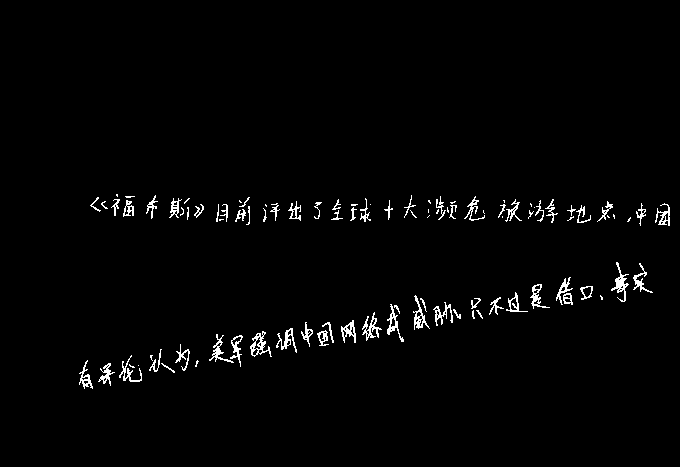 《福布斯》目前评出了全球十大濒危旅游地点,中国
有舆论认为,美军强调中国网络战威胁只不过是借口、事实